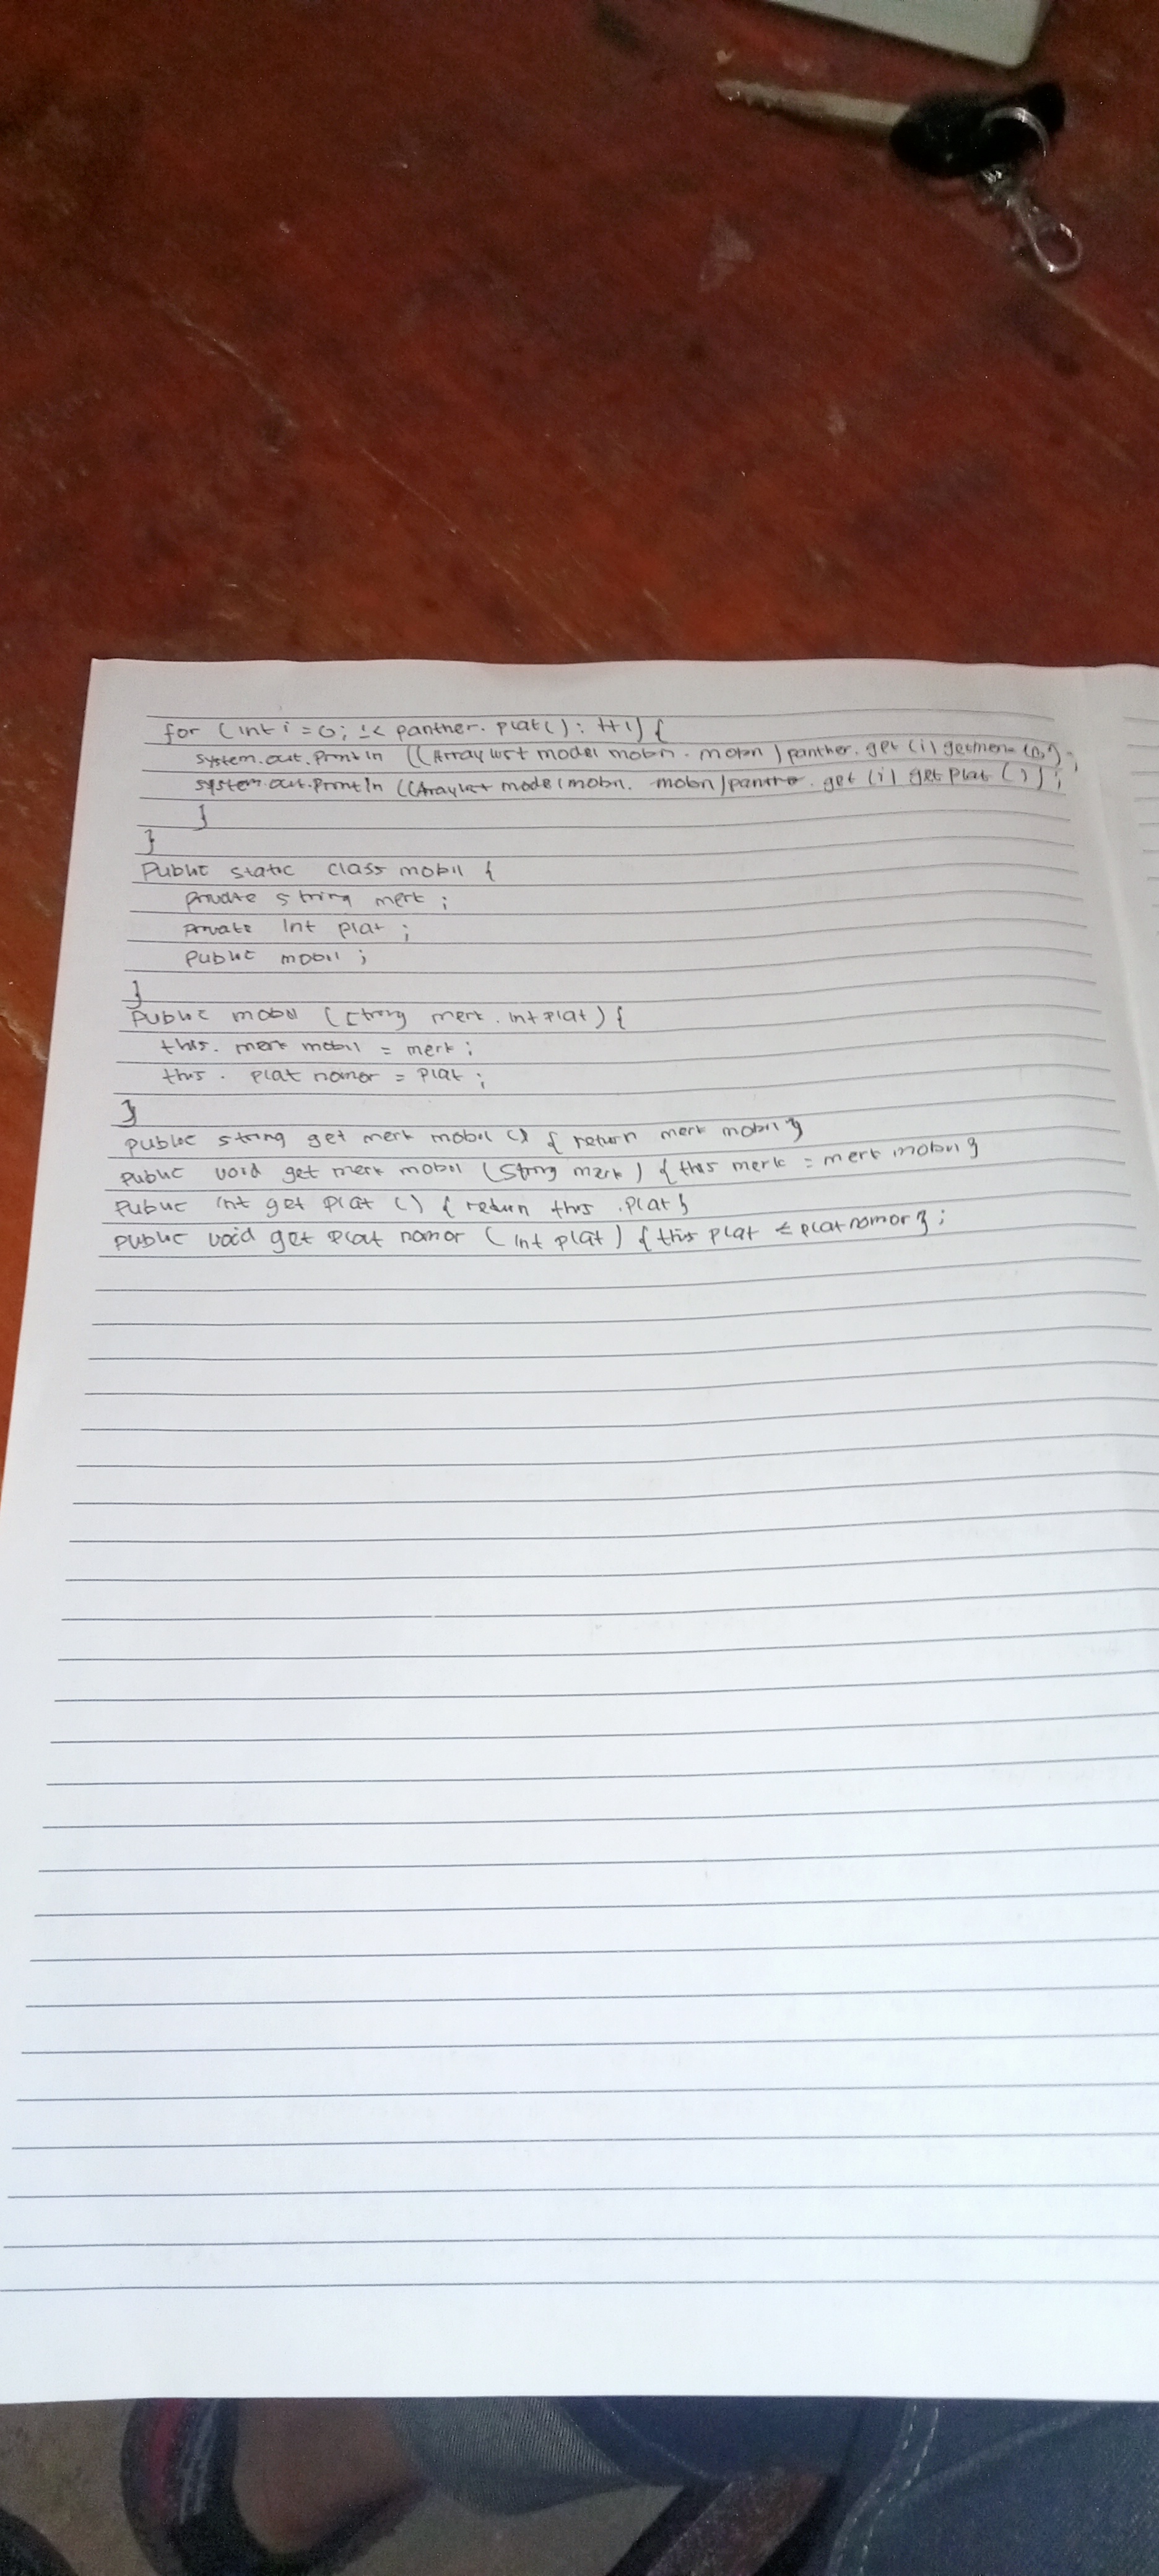 for (int i = 0; i < panther. plat() : i++) {
system.out.println ((Arraylist model mobil. mobil) panther. get (i)
system.out.println ((Araylist model mobil. mobil) get (i) get plat ());
}
}
Public static class mobil {
private string merk ;
private int plat ;
public mobil ;
}
Public mobil (string merk. int plat) {
this. merk mobil = merk ;
this. plat nomor = plat ;
}
public string get merk mobil () { return merk mobil }
public void get merk mobil (string merk) { this merk = merk mobil }
public int get plat () { return this .plat }
public void get plat nomor (int plat) { this plat = plat nomor } ;